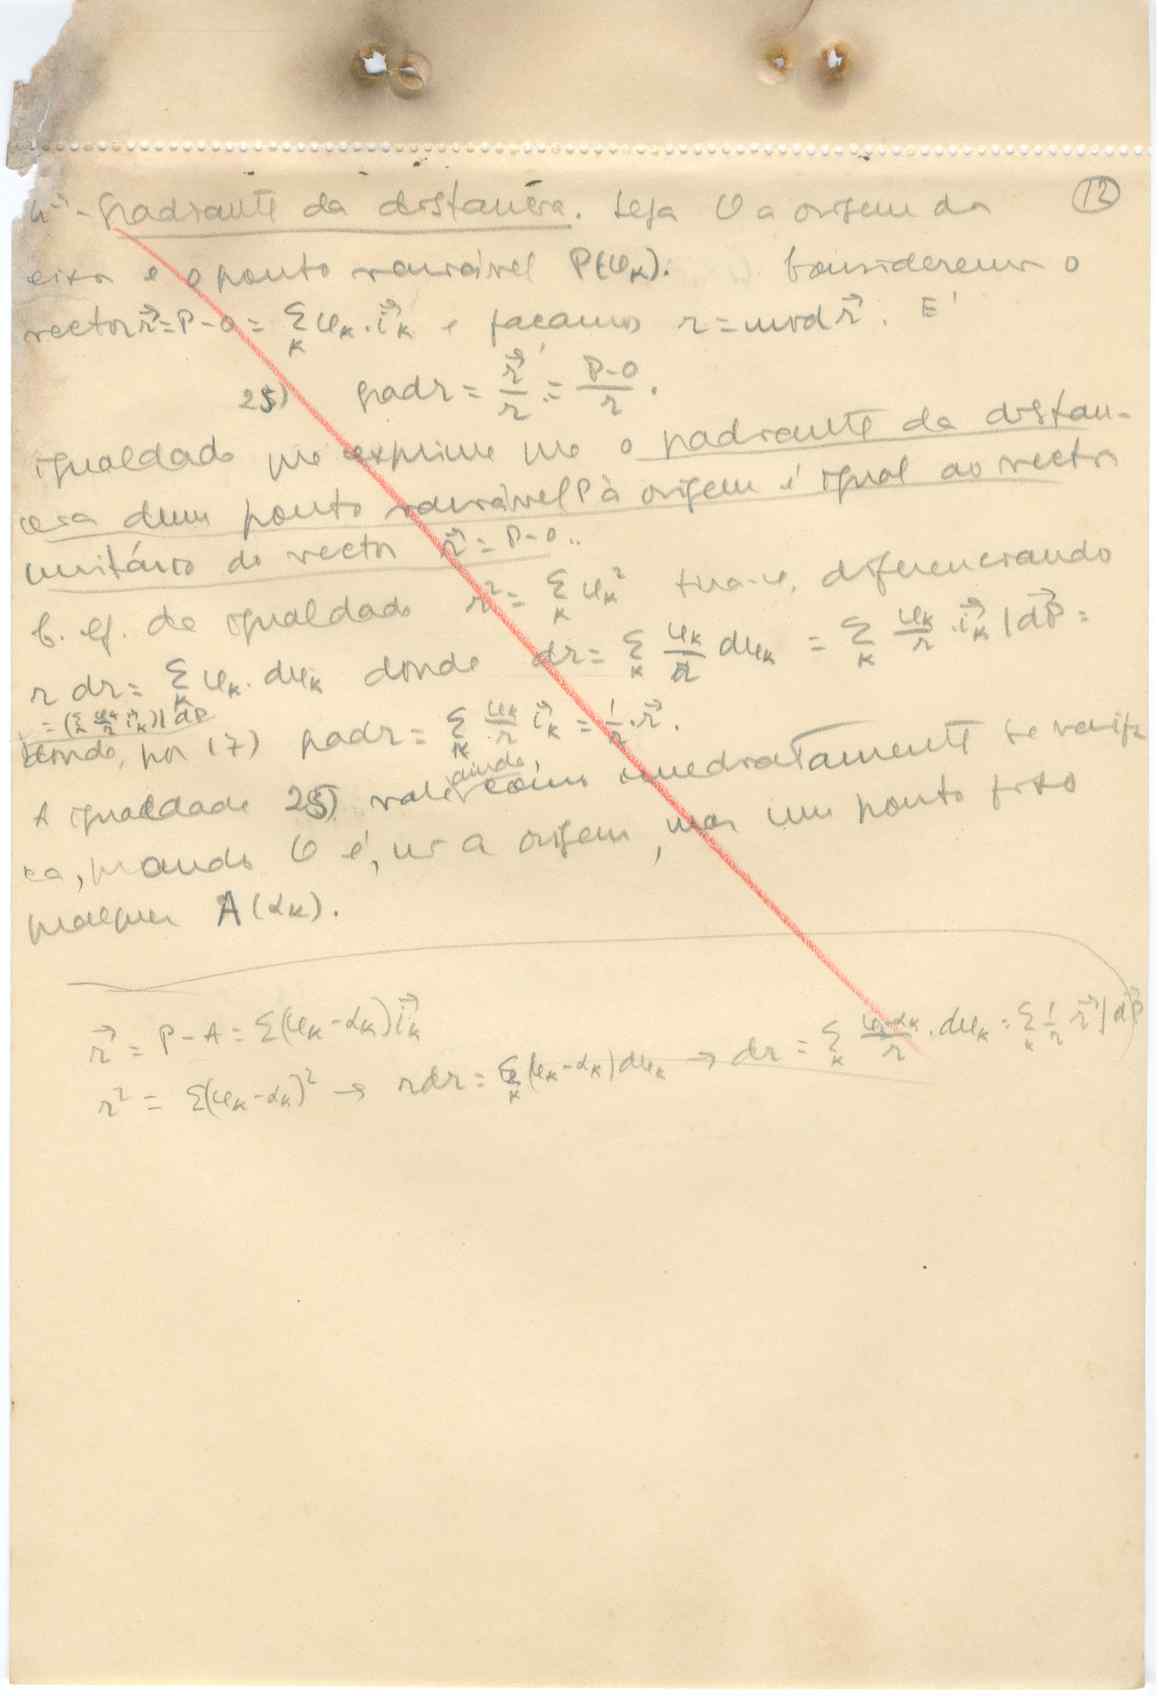 4º - Gradiante da distância. Seja O a origem da (12)
eixos e o ponto variável P(u_k). Consideremos o
vector r⃗ = P-O = Σ_k u_k . i⃗_k e façamos r = mod r⃗. E'
25) grad r = r⃗/r = P-O/r .
igualdade que exprime que o gradiante da distân-
cia dum ponto variável P à origem é igual ao vector
unitário do vector r⃗ = P-O ..
C. ef. da igualdade r² = Σ_k u_k² tira-se, diferenciando
r dr = Σ_k u_k . du_k donde dr = Σ_k u_k/r du_k = Σ_k u_k/r . i⃗_k | dP⃗ =
= (Σ_k u_k/r i⃗_k) | dP⃗
donde, por 17) grad r = Σ_k u_k/r i⃗_k = 1/r . r⃗ .
A igualdade 25) vale ainda, como imediatamente se verifi
ca, quando O é, não a origem, mas um ponto fixo
qualquer A(α_k).
r⃗ = P-A = Σ(u_k-α_k) i⃗_k
r² = Σ(u_k-α_k)² → rdr = Σ_k (u_k-α_k) du_k → dr = Σ_k u_k-α_k/r . du_k = Σ_k 1/r r⃗ | dP⃗